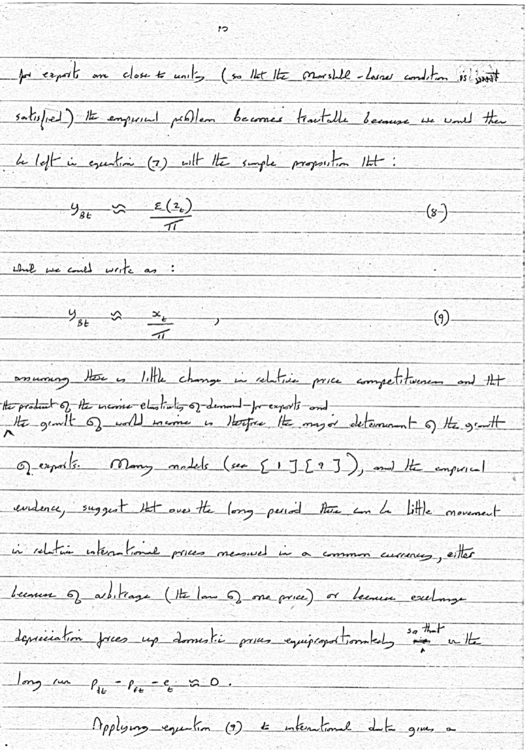 12
for exports are close to unity (so that the Marshall-Lerner condition is just
satisfied) the empirical problem becomes tractable because we would then
be left in equation (7) with the simple proposition that :
y_Bt ≈ ε(z_t)/π (8)
which we could write as :
y_Bt ≈ x_t/π , (9)
assuming there is little change in relative price competitiveness and that
the product of the income-elasticity-of-demand-for-exports and
^ the growth of world income is therefore the major determinant of the growth
of exports. Many models (see [1] [9]), and the empirical
evidence, suggest that over the long period there can be little movement
in relative international prices measured in a common currency, either
because of arbitrage (the law of one price) or because exchange
depreciation forces up domestic prices equiproportionately so that in the
long run P_dt - P_ft - e_t ≈ 0.
Applying equation (9) to international data gives a